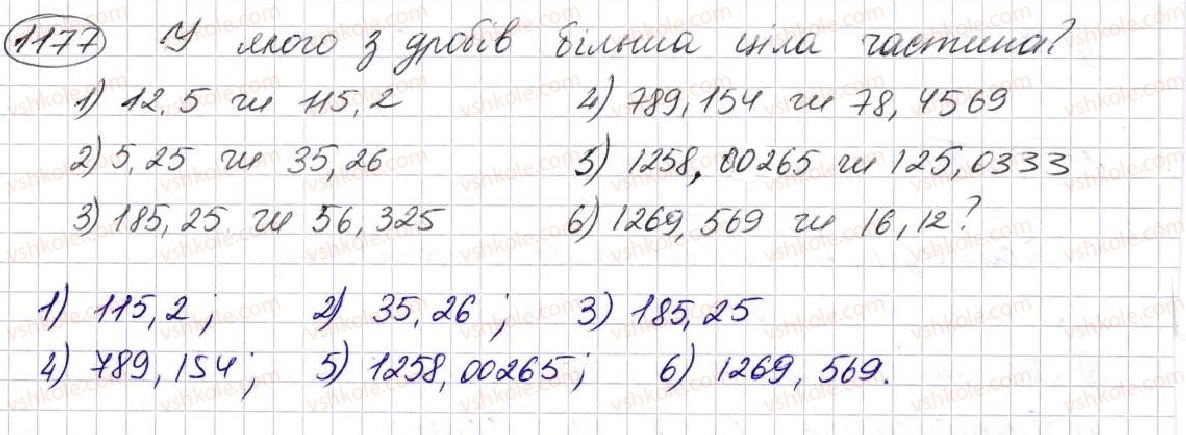 1177 У якого з дробів більша ціла частина?
1) 12,5 чи 115,2 4) 789,154 чи 78,4569
2) 5,25 чи 35,26 5) 1258,00265 чи 125,0333
3) 185,25 чи 56,325 6) 1269,569 чи 16,12?
1) 115,2; 2) 35,26; 3) 185,25
4) 789,154; 5) 1258,00265; 6) 1269,569.
vshkole.com